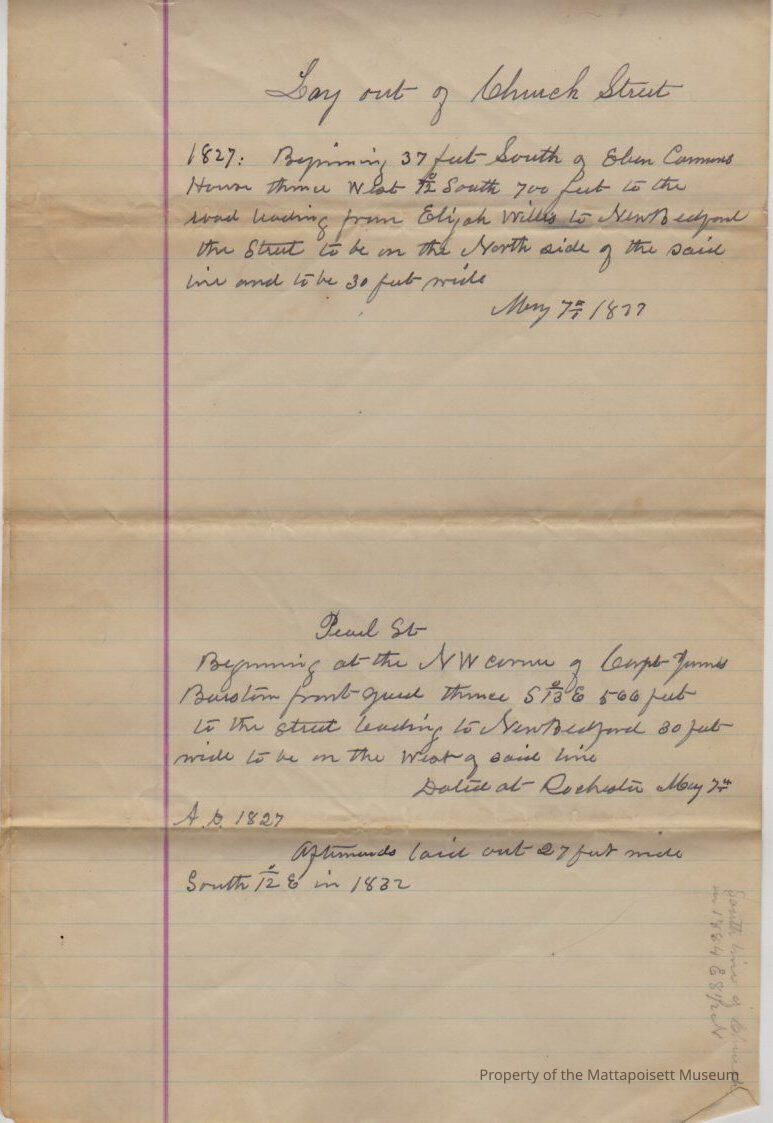 Lay out of Church Street
1827: Beginning 37 feet South of Eben Cannons
House thence West 12° South 700 feet to the
road leading from Elijah Willis to New Bedford
the Street to be on the North side of the said
line and to be 30 feet wide
May 7th 1827
Pearl St
Beginning at the NW corner of Capt James
Barstow front yard thence S 13° E 560 feet
to the street leading to New Bedford 30 feet
wide to be on the West of said line
Dated at Rochester May 7th
A.D. 1827
Afterwards laid out 27 feet wide
South 12° E in 1832
South line of Church
in 1884
Property of the Mattapoisett Museum